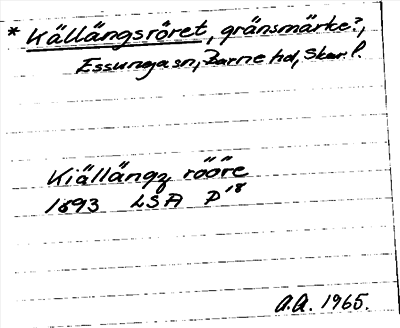 * Källängsröret, gränsmärke?,
Essunga sn, Barne hd, Skar. l.
Kiällängz rööre
1693 LSA P18
A.A. 1965.